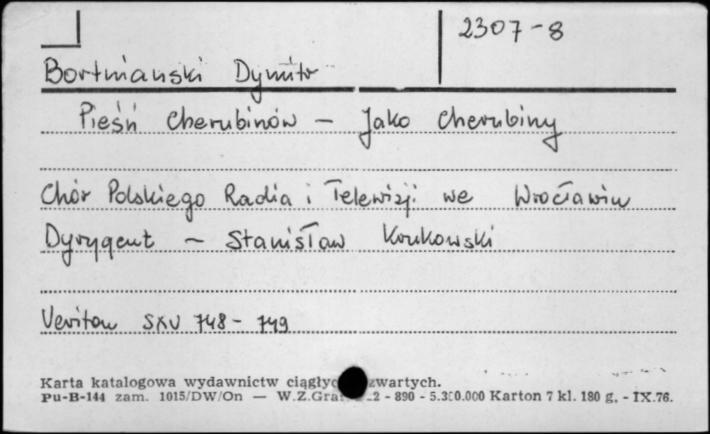 2307-8
Bortnianski Dymitr
Pieśń Cherubinów - Jako Cherubiny
Chór Polskiego Radia i Telewizji we Wrocławiu
Dyrygent - Stanisław Krukowski
Veriton SXV 748-749
Karta katalogowa wydawnictw zwartych.
Pu-B-144 zam. 1015/DW/On — 2 - 890 - Karton 7 kl. 180 g. - IX.76.